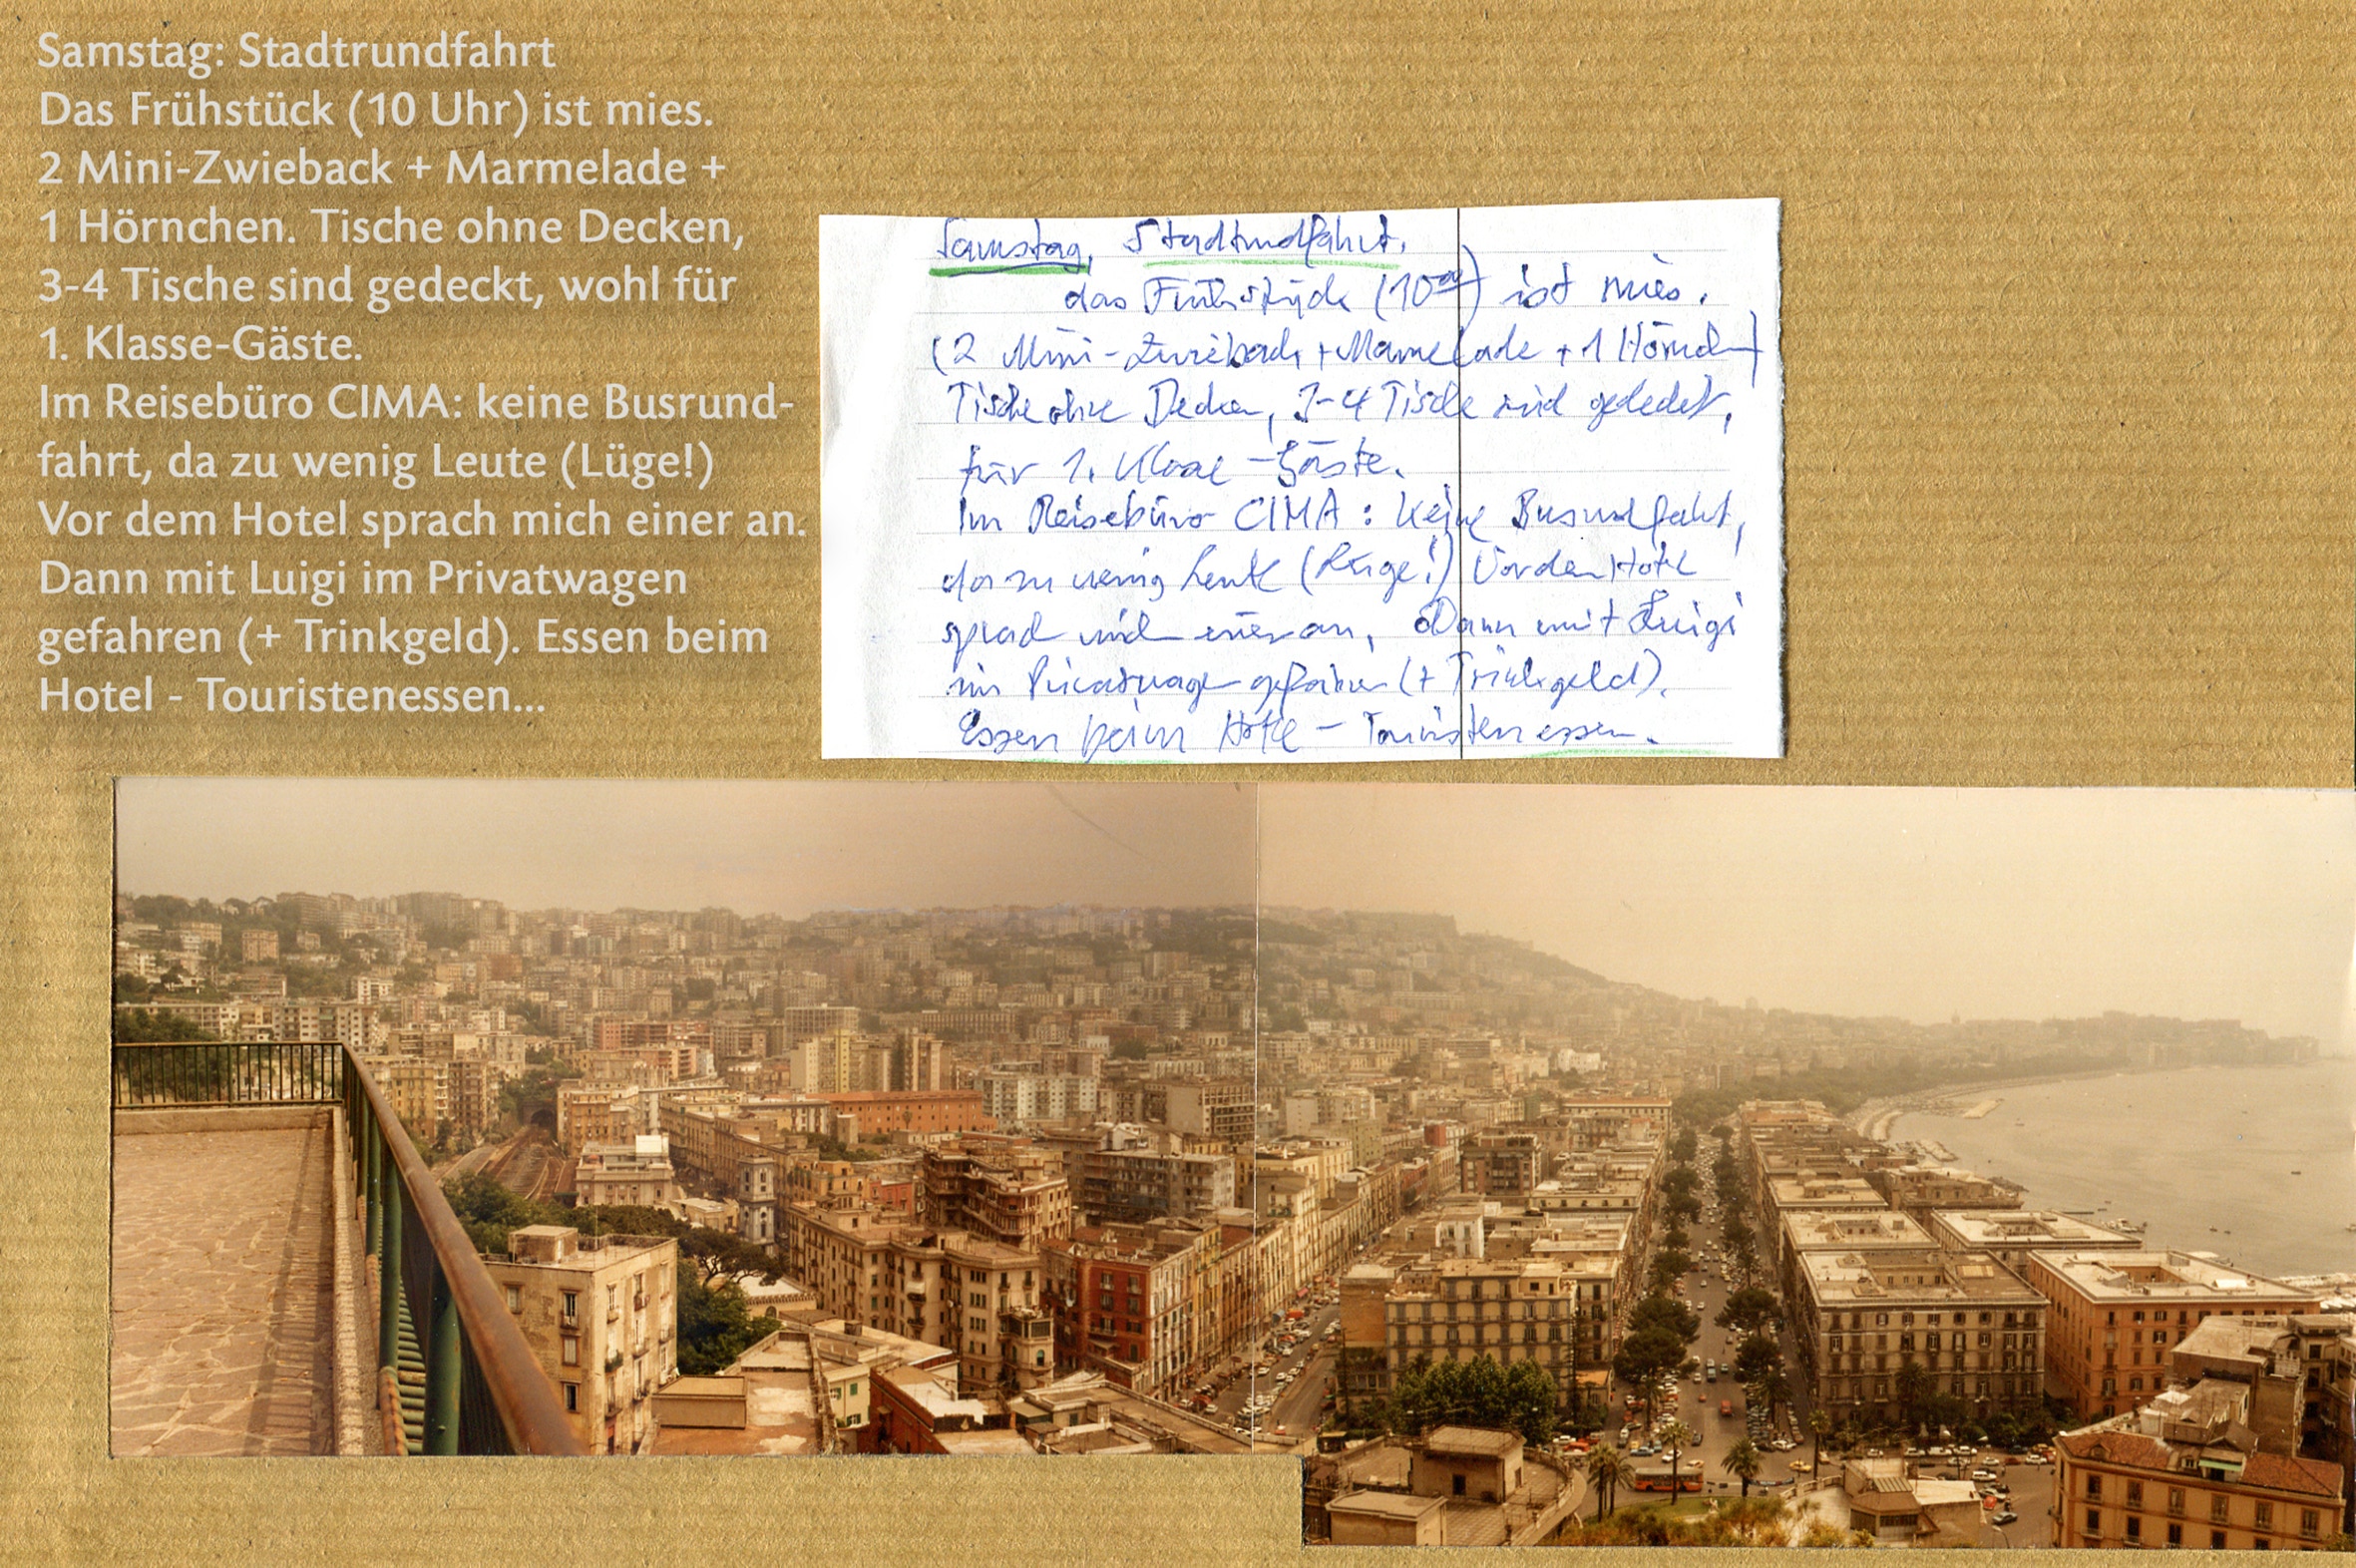 Samstag: Stadtrundfahrt
Das Frühstück (10 Uhr) ist mies.
2 Mini-Zwieback + Marmelade +
1 Hörnchen. Tische ohne Decken,
3-4 Tische sind gedeckt, wohl für
1. Klasse-Gäste.
Im Reisebüro CIMA: keine Busrund-
fahrt, da zu wenig Leute (Lüge!)
Vor dem Hotel sprach mich einer an.
Dann mit Luigi im Privatwagen
gefahren (+ Trinkgeld). Essen beim
Hotel - Touristenessen...
Samstag, Stadtrundfahrt.
das Frühstück (10⁰⁰) ist mies.
(2 Mini-Zwieback + Marmelade + 1 Hörnch)
Tische ohne Decken, 3-4 Tische sind gedeckt,
für 1. Klasse - Gäste.
Im Reisebüro CIMA: keine Busrundfahrt,
da zu wenig Leute (Lüge!) Vor dem Hotel
sprach mich einer an, Dann mit Luigi
im Privatwagen gefahren (+ Trinkgeld).
Essen beim Hotel - Touristenessen.